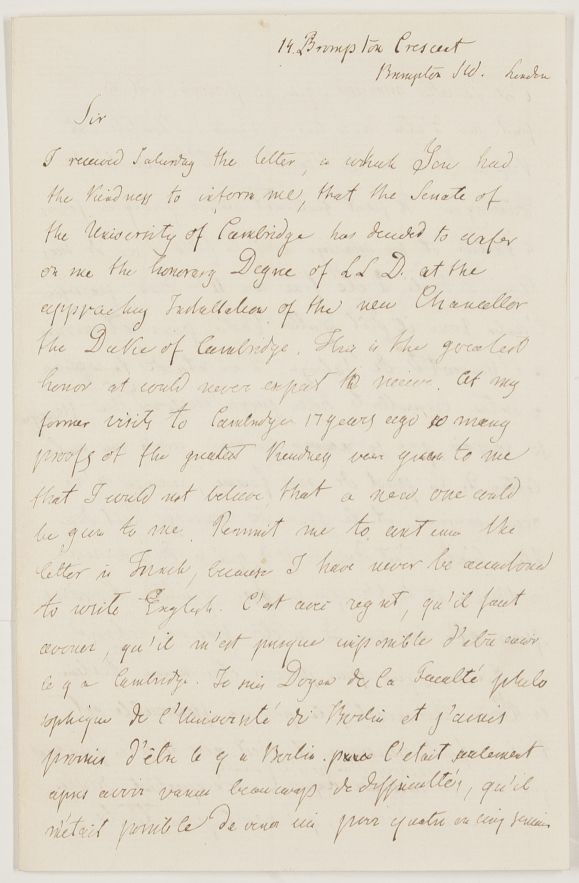 14 Brompton Crescent
Brompton S.W. London
Sir
I received Saturday the letter, in which You had
the Kindness to inform me, that the Senate of
the University of Cambridge has decided to confer
on me the honorary Degree of L L D. at the
approaching Installation of the new Chancellor
the Duke of Cambridge. This is the greatest
honor at could never expect to receive. At my
former visits to Cambridge 17 years ago so many
proofs of the greatest Kindness were given to me
that I would not believe, that a new one could
be given to me. Permit me to continue the
letter in French, because I have never be accustomed
to write English. C'est avec regret, qu'il faut
avouer, qu'il m'est presque impossible d'être
le 9 a Cambridge. Je suis Doyen de la Faculté philo
sophique de l'Université de Berlin et j'avais
promis d'être le 9 a Berlin. C'etait seulement
apres avoir vaincu beaucoup de difficultés, qu'il
m'était possible de venir ici pour quatre ou cinq semaines